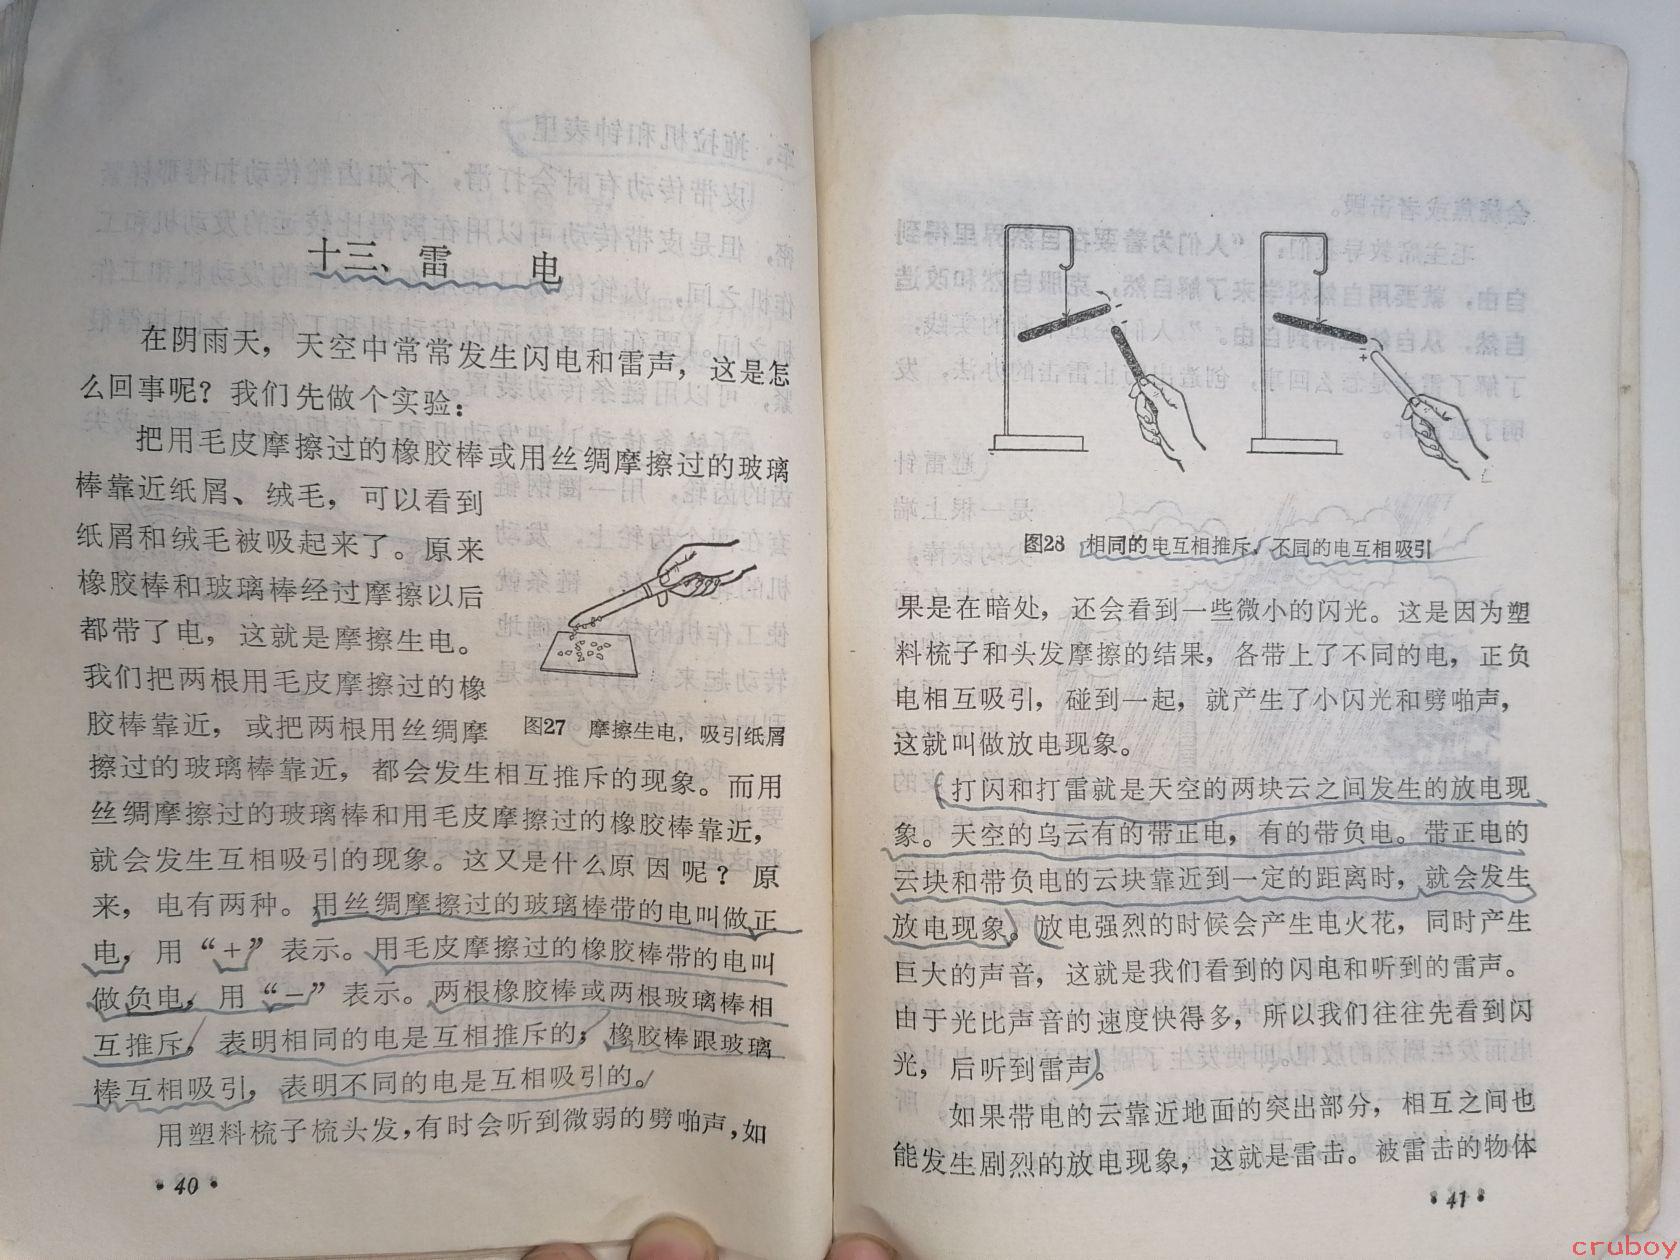 十三、雷 电
在阴雨天，天空中常常发生闪电和雷声，这是怎
么回事呢？我们先做个实验：
把用毛皮摩擦过的橡胶棒或用丝绸摩擦过的玻璃
棒靠近纸屑、绒毛，可以看到
纸屑和绒毛被吸起来了。原来
橡胶棒和玻璃棒经过摩擦以后
都带了电，这就是摩擦生电。
我们把两根用毛皮摩擦过的橡
胶棒靠近，或把两根用丝绸摩
图27 摩擦生电，吸引纸屑
擦过的玻璃棒靠近，都会发生相互推斥的现象。而用
丝绸摩擦过的玻璃棒和用毛皮摩擦过的橡胶棒靠近，
就会发生互相吸引的现象。这又是什么原因呢？原
来，电有两种。用丝绸摩擦过的玻璃棒带的电叫做正
电，用“＋”表示。用毛皮摩擦过的橡胶棒带的电叫
做负电，用“－”表示。两根橡胶棒或两根玻璃棒相
互推斥，表明相同的电是互相推斥的；橡胶棒跟玻璃
棒互相吸引，表明不同的电是互相吸引的。
用塑料梳子梳头发，有时会听到微弱的劈啪声，如
·40·
图28 相同的电互相推斥，不同的电互相吸引
果是在暗处，还会看到一些微小的闪光。这是因为塑
料梳子和头发摩擦的结果，各带上了不同的电，正负
电相互吸引，碰到一起，就产生了小闪光和劈啪声，
这就叫做放电现象。
打闪和打雷就是天空的两块云之间发生的放电现
象。天空的乌云有的带正电，有的带负电。带正电的
云块和带负电的云块靠近到一定的距离时，就会发生
放电现象。放电强烈的时候会产生电火花，同时产生
巨大的声音，这就是我们看到的闪电和听到的雷声。
由于光比声音的速度快得多，所以我们往往先看到闪
光，后听到雷声。
如果带电的云靠近地面的突出部分，相互之间也
能发生剧烈的放电现象，这就是雷击。被雷击的物体
·41·
cruboy